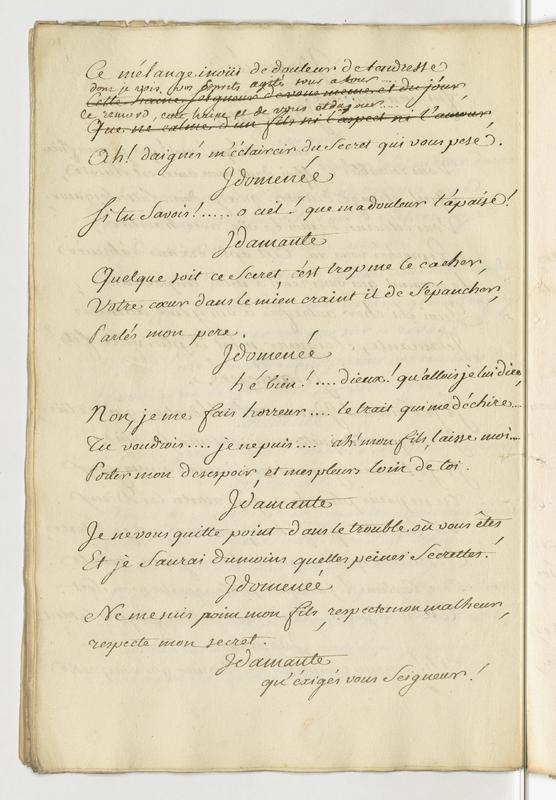 Ce mélange inoüi de douleur de tendresse
dont je vois vos esprits agités tour a tour....
Cette haine, Seigneur de vous meme et du jour
Ce remord, cette haine et de vous et du jour....
Que ne calme d'un fils ni l'aspect ni l'amour
Ah! daignés m'éclaircir du Secret qui vous pese.
Idomenée
Si tu Savois!..... o ciel! que ma douleur t'apaise!
Idamante
Quelque soit ce Secret c'est trop me le cacher,
Votre cœur dans le mien craint il de S'épancher,
Parlés mon pere.
Idomenée
hé bien! .... dieux! qu'allois je lui dire,
Non, je me fais horreur.... le trait qui me déchire....
Tu voudrois.... je ne puis.... ah! mon fils, laisse moi....
Porter mon desespoir, et mes pleurs loin de toi.
Idamante
Je ne vous quitte point dans le trouble où vous êtes
Et je Saurai du moins quelles peines Secrettes.!
Idomenée
Ne me suis point mon fils, respecte mon malheur,
respecte mon secret.
Idamante
qu'éxigés vous Seigneur!